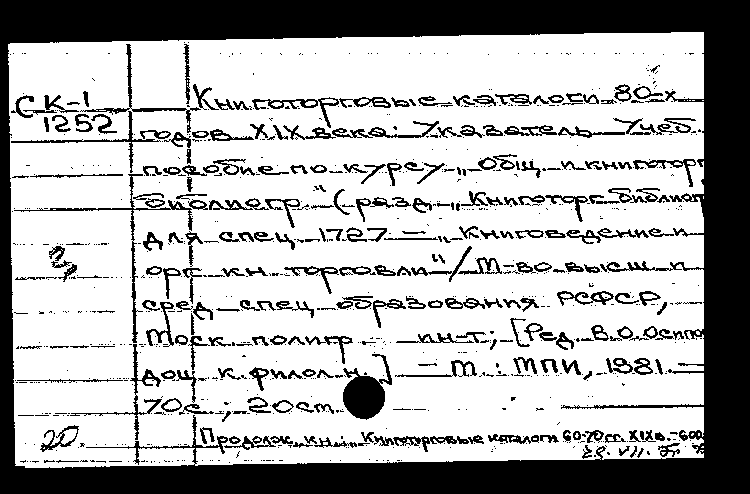 СК-1
1252
Книготорговые каталоги 80-х
годов XIX века: Указатель Учеб.
пособие по курсу „Общ. и книготорг
библиогр." (разд. „Книготорг. библиог
для спец. 1727 – „Книговедение и
орг. кн. торговли"/М-во высш. и
сред. спец. образования РСФСР,
Моск. полигр. ин-т; [Ред. В.О. Осипо
доц. к. филол. н.] – М.: МПИ, 1981. –
70с.; 20см.
20.
Продолж. кн.: Книготорговые каталоги 60-70 гг. XIXв. – 600